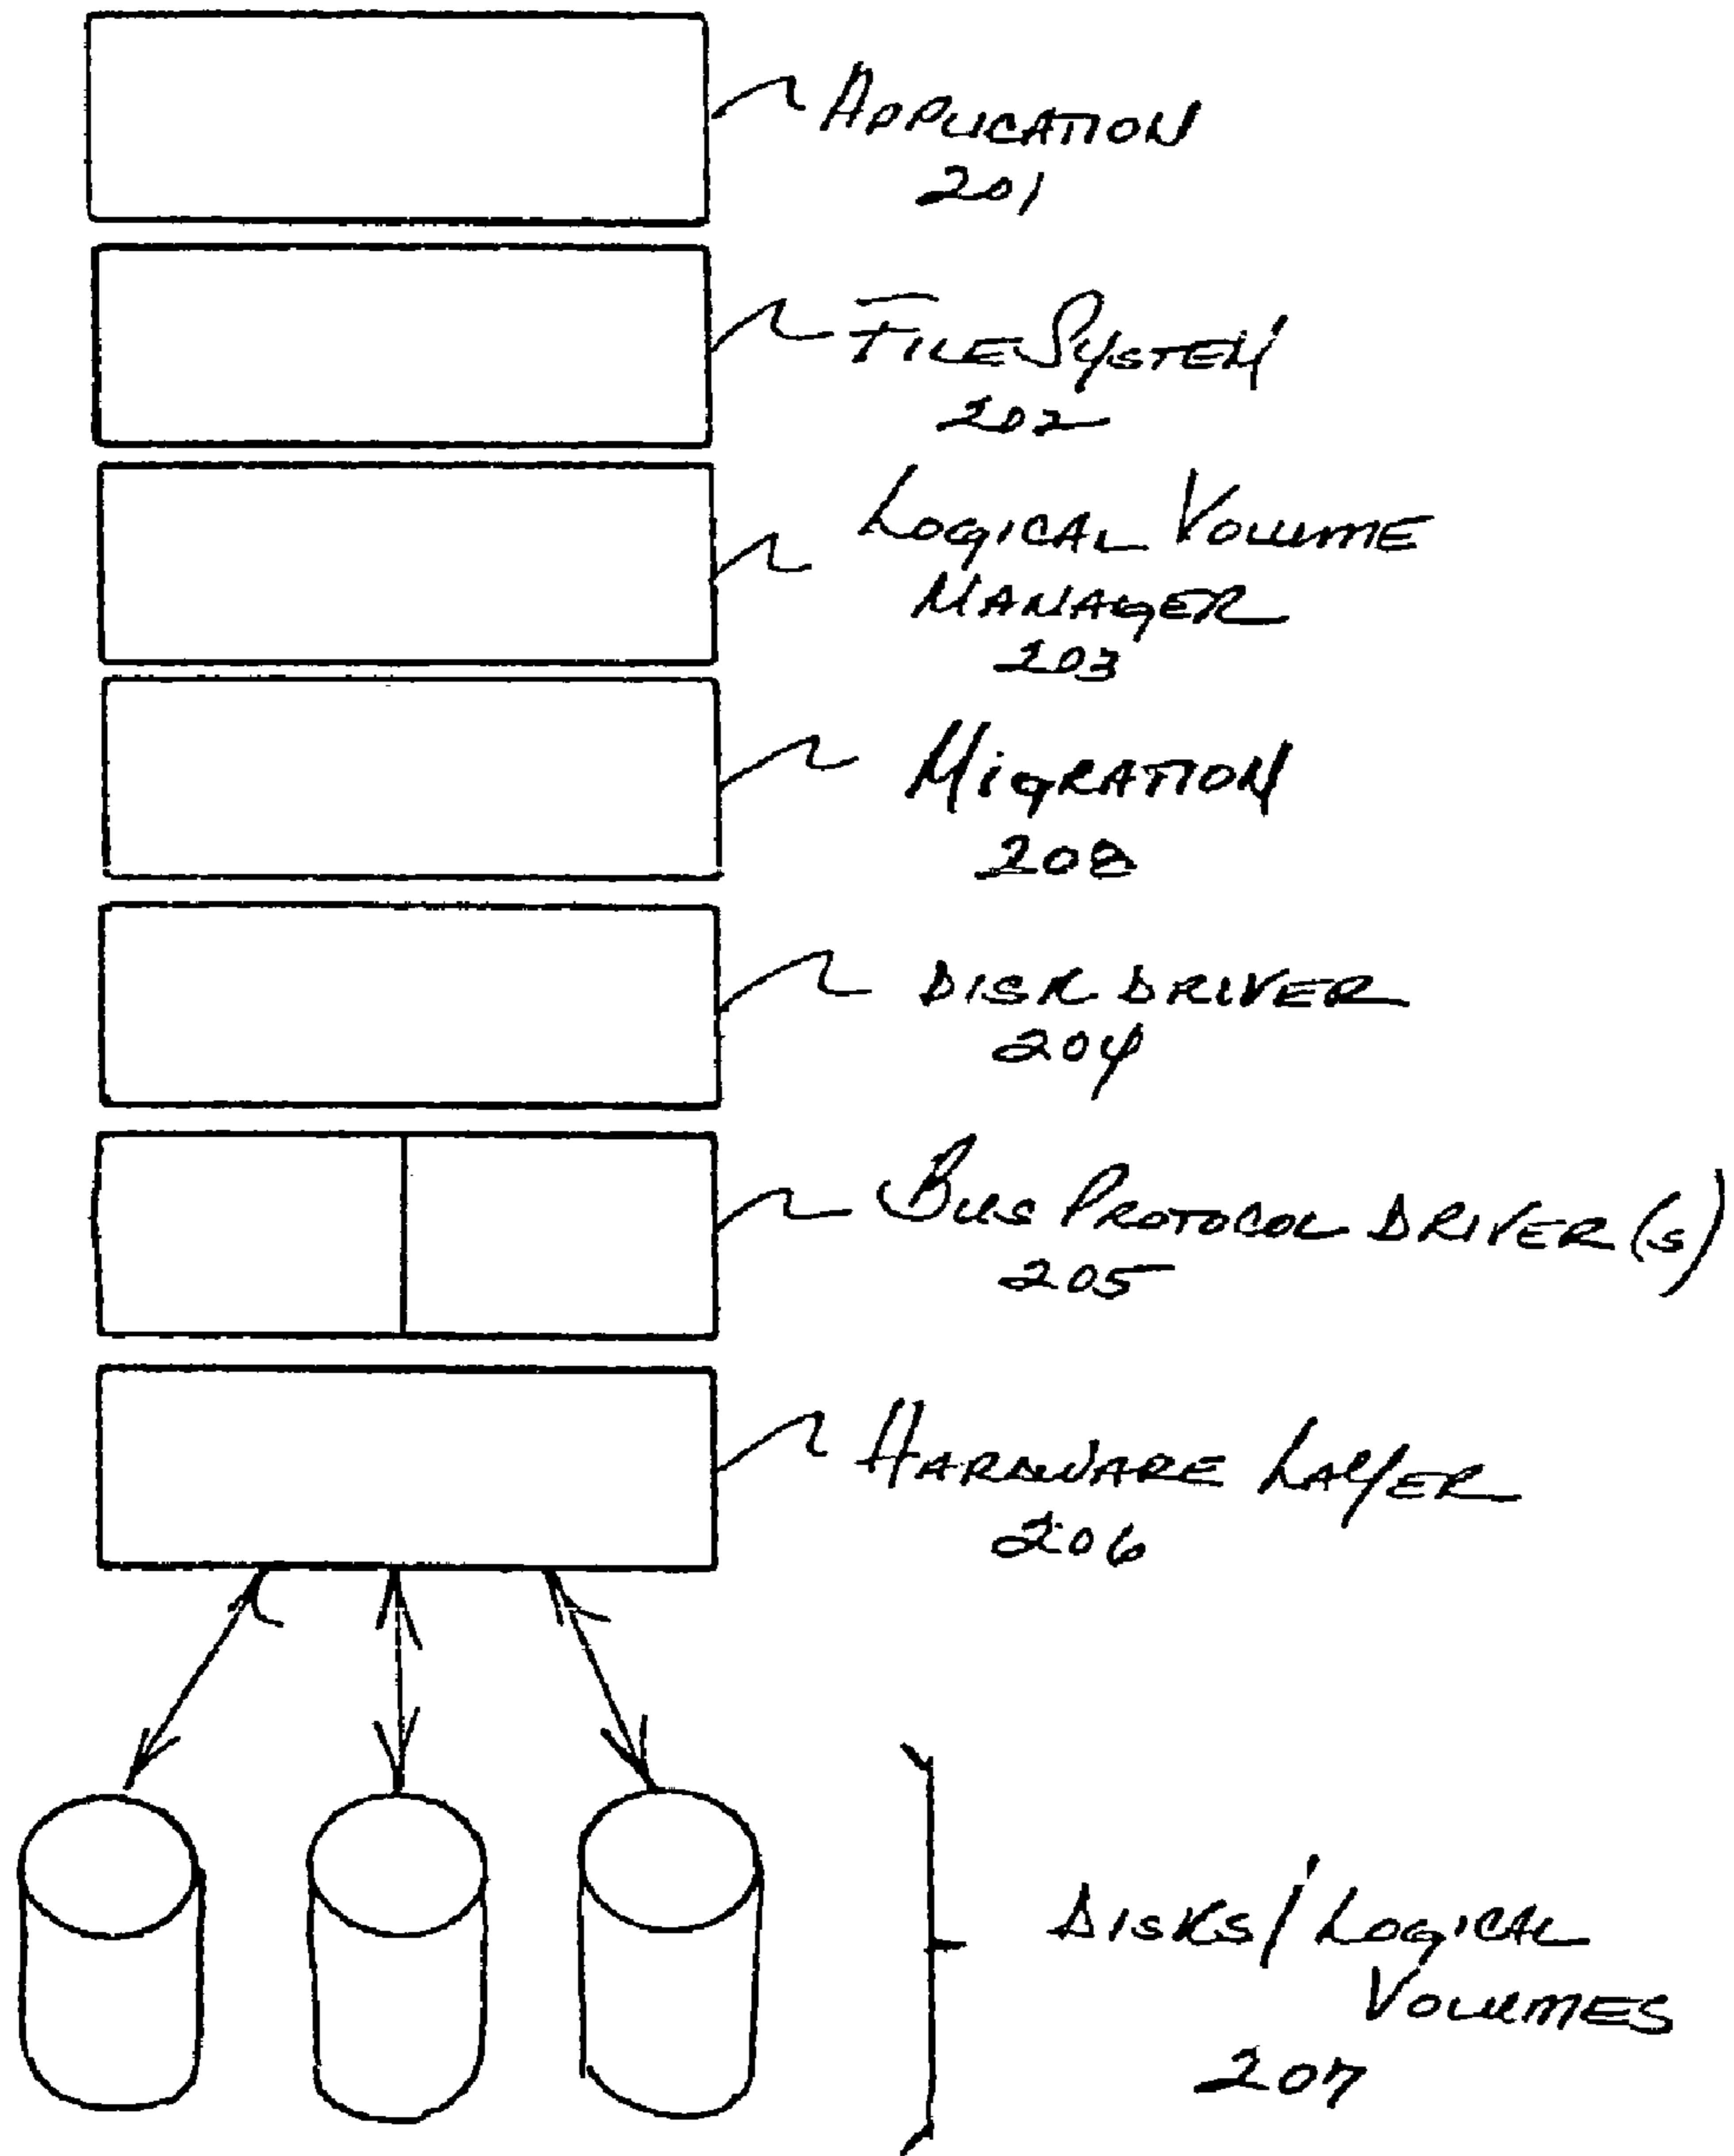 APPLICATION
201
FILE SYSTEM
202
LOGICAL VOLUME
MANAGER
203
MIGRATION
208
DISK DRIVER
204
BUS PROTOCOL DRIVER(S)
205
HARDWARE LAYER
206
DISKS/LOGICAL
VOLUMES
207